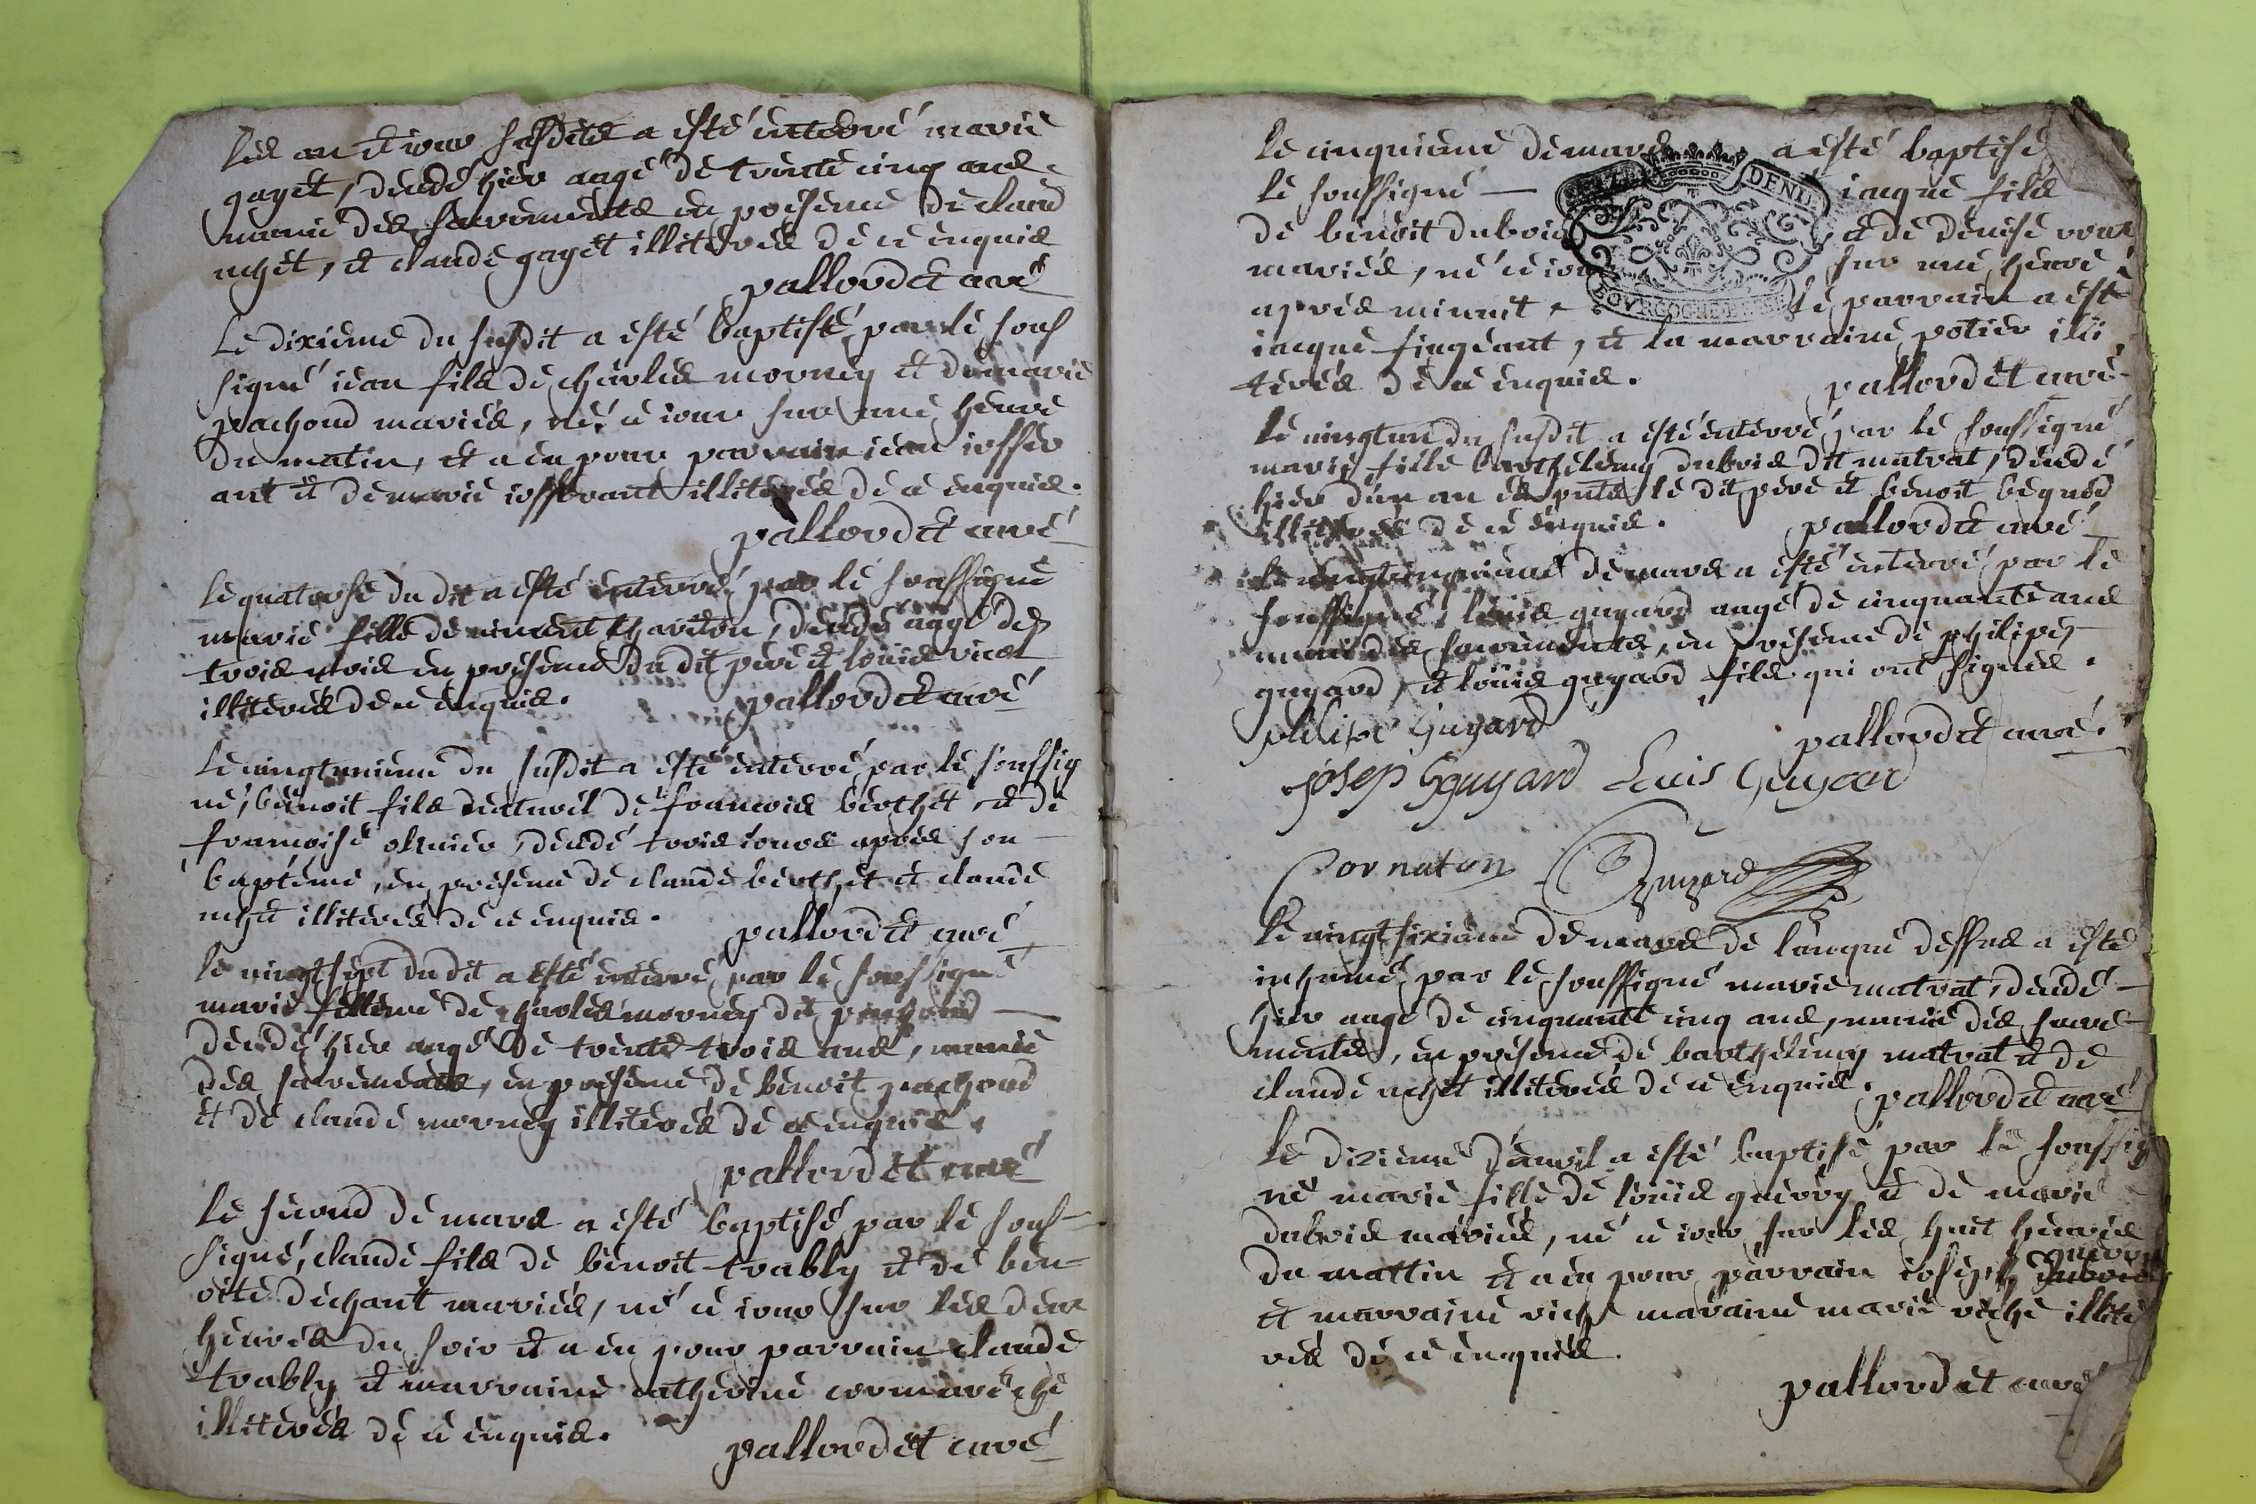 Les an et jour susdits a esté enterré marie
gayet, décédé hier aagé de trente cinq ans
munie des sacrements en présence de claud
uchet, et claude gayet illiterés de ce enquis
pallordet curé
Le dixième du susdit a esté baptisé par le sous
signé jean fils de charles morney et de marie
pachoud mariés, né ce jour sur une heure
du matin, et a eu pour parrain jean joffer
ant et de marie jofferant illiterés de ce enquis.
pallordet curé
Le quatorse du dit a esté enterré par le soussigné
marie fille de vincent chariton, décédé aagé de
trois mois en présence du dit père et loüis
illiterés de ce enquis.
pallordet curé
Le vingtunième du susdit a esté enterré par le soussig
né, benoit fils naturél de francois berthet et de
francoise olivier, décédé trois jours après son
baptéme, en présence de claude berthet et claude
uchet illiterés de ce enquis.
pallordet curé
Le vingtsept du dit a esté enterré par le soussigné
marie femme de charles morney dit pachoud
décédé hier aagé de trente trois ans, munie
des sacrements, en présence de benoit pachoud
et de claude morney illiterés de ce enquis.
pallordet curé
Le second de mars a esté baptisé par le sous-
signé, claude fils de benoit trably et de ben-
oite dechant mariés, né ce jour sur les deux
heures du soir et a eu pour parrain claude
trably et marraine catherine cormareche
illiterés de ce enquis.
pallordet curé
Le cinquième de mars a esté baptisé
le soussigné jacque fils
DENI
de benoit dubois et de denise
mariés, né ce jour sur une heure
BOVRGOGNE
après minuit le parrain a esté
jacque fingeant, et la marraine potier illi
terés de ce enquis.
pallordet curé
Le vingtun du susdit a esté enterré par le soussigné
marie fille barthelemy dubois dit matrat, décédé
hier d'un an és pnts le dit père et benoit
illiterés de ce enquis.
pallordet curé
Le vingtcinquième de mars a esté enterré par le
soussigné, loüis guyard aagé de cinquante ans
muni des sacrements, en présence de philipes
guyard, et loüis guyard fils qui ont signés.
philipe Guyard
pallordet curé.
josep Gguyard Louis Guyard
Cornaton Guyard
Le vingtsixième de mars de l'an que dessus a esté
inhumé par le soussigné marie matrat, décédé
hier aagé de cinquante cinq ans, munie des sacre-
ments, en présence de barthelemy matrat et de
claude uchet illiterés de ce enquis.
pallordet curé
Le dixième d'avril a esté baptisé par le soussig
né marie fille de loüis guerry et de marie
dubois mariés, né ce jour sur les huit heures
guerry
du mattin et a eu pour parrain joseph dubois
et marraine riche maraine marie riche illite
rés de ce enquis.
pallordet curé